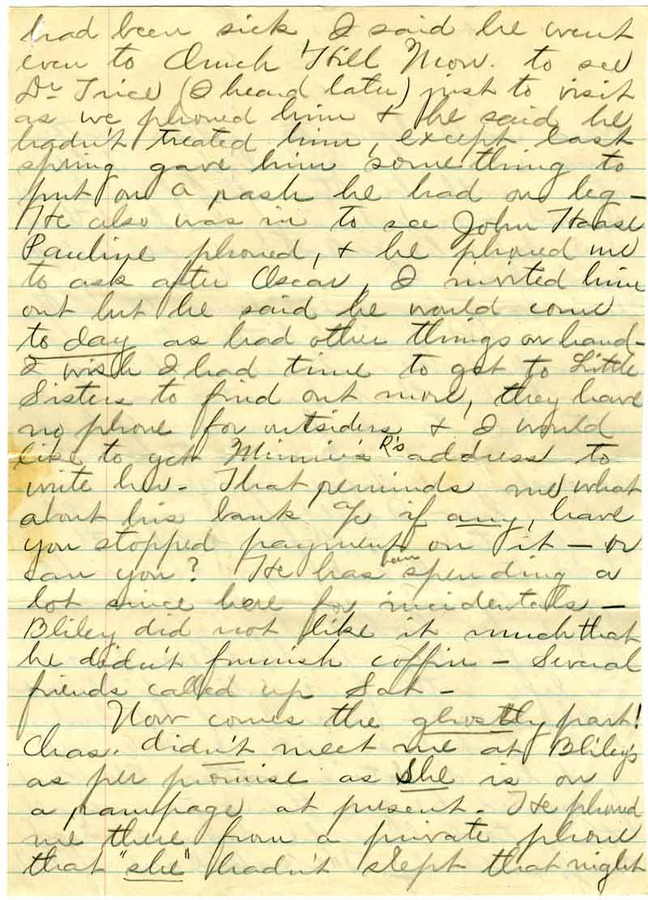 had been sick I said he went
even to Church Hill Mon. to see
Dr Trice (I heard later) just to visit
as we phoned him & he said he
hadn't treated him, except last
spring gave him something to
put on a rash he had on leg –
He also was in to see John Haase
Pauline phoned, & he phoned me
to ask after Oscar, I invited him
out but he said he would come
to day as had other things on hand –
I wish I had time to get to Little
Sisters to find out more, they have
no phone for outsiders & I would
like to get Minnie's R's address to
write her. That reminds me what
about his bank a/c if any, have
you stopped payment on it – or
can you? He has been spending a
lot since here for incidentals –
Bliley did not like it much that
he didn't furnish coffin – Several
friends called up Sat –
Now comes the ghostly part!
Chas. didn't meet me at Bliley's
as per promise as She is on
a rampage at present. He phoned
me there from a private phone
that "she" hadn't slept that night